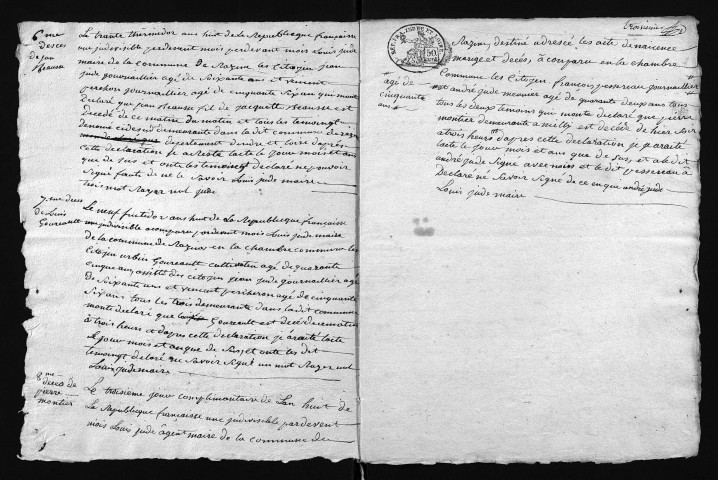 6me
desces
de jean
Beausse
Le trante thermidor ans huit de la Republique françoise
une indivisible perdevent mois perdevant mois Louis jude
maire de la commune de Razine les Citoyen jean
jude journallier agé de soixante ans et vincent
pericheron journallier agé de cinquante six ans qui mont
Declaré que jean Beausse fil de jacquette Beausse est
Decédé de ce matine du matin et tous les temoingt
denome cidesus demeurante dans la dit commune de Razine
departement dendre et Loire daprés
cette declaration je arreste lacte le jour mois et ans
que de sus et onte les temoingt declaré ne pouvoir
Signé faute de ne le Savoir Louis jude maire
trois mot Rayer nul jude
7eme deces
de Louis
Goureault
Le neuf fructidor ans huit de La Republique françoise
une indivisible acomparu perdevent mois Louis jude maire
de la commune de Razine en la chambre commune les
Citoyen urbin Goureault cultivateur agé de quarante
cinque ans assisté des citoyen jean jude journallier agé
de Soixante ans et vincent pericheron agé de cinquante
Six ans tous les trois demeurante dans la dit commune
monte déclaré que Louis Goureault est décédé de ce matin
à trois heurs et daprés cette declaration je araité lacte
Le jour mois et ans que de Sus et onte les dit
temoingt declaré ne Savoir Signé un mot Rayer nul
Louis jude maire
8me
deces de
pierre
montier
Le troisieme jour complimentaire de Lan huit de
La Republique françaisse une indivisible pardevent
mois Louis jude agent maire de la commune de
Razine, destiné adressé les acte de naicence
mariage et decés, à comparu en la chambre
Commune les Citoyen françois pessereau journallier
agé de
cinquante
ans
et andré jude meunier agé de quarante deux ans tous
tous les deux temoins qui monte declaré que pierre
montier demeurante a est decédé de hier soir
a trois heurs daprés cette declaration je araité
lacte le jour mois et ans que de sus, et a le dit
andré jude Signé avec nous et le dit pessereau a
Declaré né Savoir Signé de ce enquis andré jude
Louis jude maire